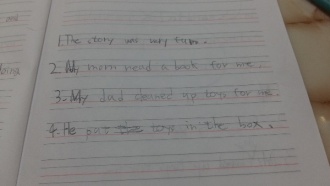 1. The story was very fun.
2. My mom read a book for me.
3. My dad cleaned up toys for me.
4. He put the toys in the box.